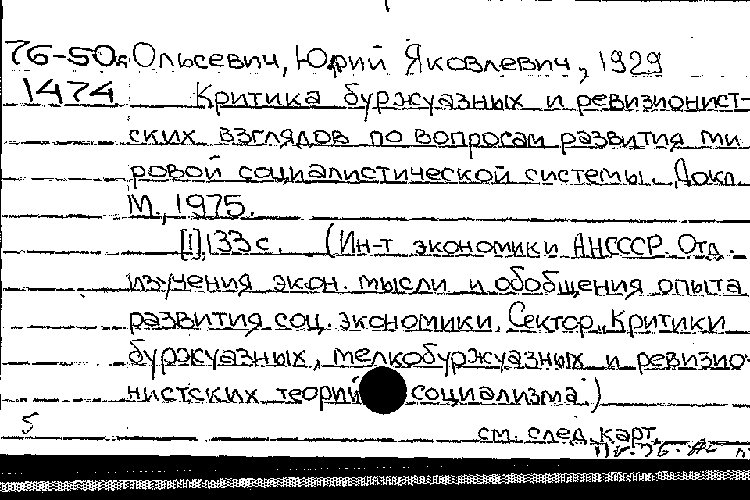 76-50 Ольсевич, Юрий Яковлевич, 1929
1474 Критика буржуазных и ревизионист-
ских взглядов по вопросам развития ми
ровой социалистической системы. Докл.
М., 1975.
[1], 133 с. (Ин-т экономики АНСССР. Отд.
изучения экон. мысли и обобщения опыта
развития соц. экономики. Сектор Критики
буржуазных, мелкобуржуазных и ревизио-
нистских теорий социализма.)
5
см. след. карт.